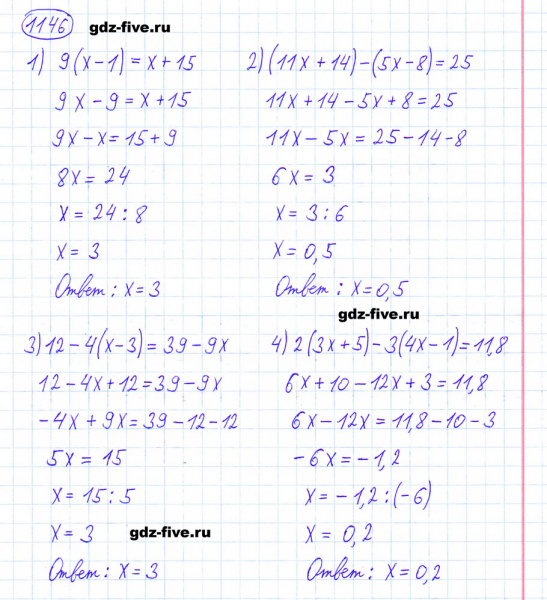 1146 gdz-five.ru
1) 9(x-1)=x+15
9x-9=x+15
9x-x=15+9
8x=24
x=24:8
x=3
Ответ: x=3
2) (11x+14)-(5x-8)=25
11x+14-5x+8=25
11x-5x=25-14-8
6x=3
x=3:6
x=0,5
Ответ: x=0,5
gdz-five.ru
3) 12-4(x-3)=39-9x
12-4x+12=39-9x
-4x+9x=39-12-12
5x=15
x=15:5
x=3
gdz-five.ru
Ответ: x=3
4) 2(3x+5)-3(4x-1)=11,8
6x+10-12x+3=11,8
6x-12x=11,8-10-3
-6x=-1,2
x=-1,2:(-6)
x=0,2
Ответ: x=0,2